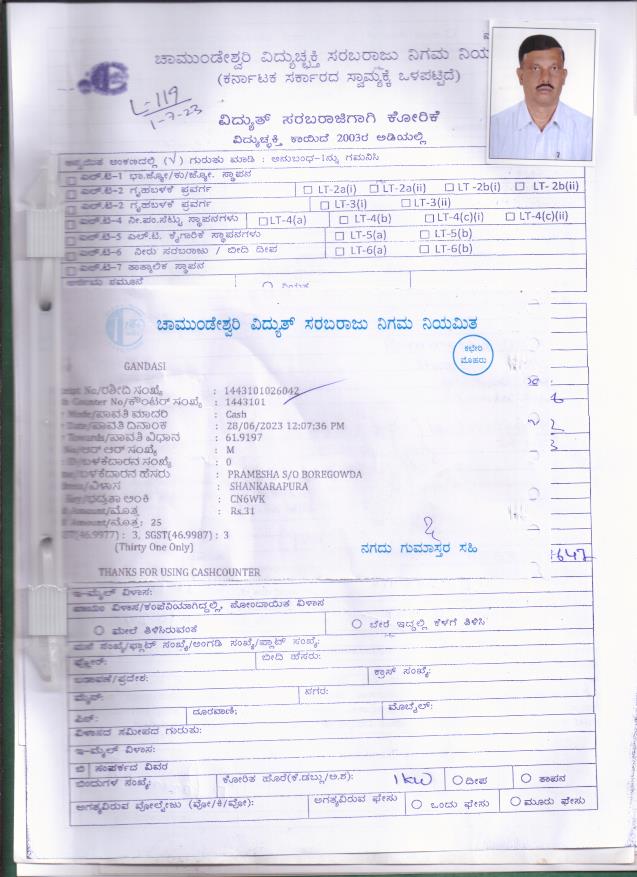 ಚಾಮುಂಡೇಶ್ವರಿ ವಿದ್ಯುಚ್ಛಕ್ತಿ ಸರಬರಾಜು ನಿಗಮ ನಿಯ
(ಕರ್ನಾಟಕ ಸರ್ಕಾರದ ಸ್ವಾಮ್ಯಕ್ಕೆ ಒಳಪಟ್ಟಿದೆ)
L-119
1-7-23
ವಿದ್ಯುತ್ ಸರಬರಾಜಿಗಾಗಿ ಕೋರಿಕೆ
ವಿದ್ಯುಚ್ಛಕ್ತಿ ಕಾಯಿದೆ 2003ರ ಅಡಿಯಲ್ಲಿ
ಅನ್ವಯಿತ ಅಂಕಣದಲ್ಲಿ (√) ಗುರುತು ಮಾಡಿ : ಅನುಬಂಧ-1ನ್ನು ಗಮನಿಸಿ
ಎಲ್.ಟಿ-1 ಭಾ.ಜ್ಯೋ/ಕು/ಜ್ಯೋ. ಸ್ಥಾಪನ
ಎಲ್.ಟಿ-2 ಗೃಹಬಳಕೆ ಪ್ರವರ್ಗ LT-2a(i) LT-2a(ii) LT -2b(i) LT- 2b(ii)
ಎಲ್.ಟಿ-2 ಗೃಹಬಳಕೆ ಪ್ರವರ್ಗ LT-3(i) LT-3(ii)
ಎಲ್.ಟಿ-4 ನೀ.ಪಂ.ಸೆಟ್ಟು ಸ್ಥಾಪನಗಳು LT-4(a) LT-4(b) LT-4(c)(i) LT-4(c)(ii)
ಎಲ್.ಟಿ-5 ಎಲ್.ಟಿ. ಕೈಗಾರಿಕೆ ಸ್ಥಾಪನಗಳು LT-5(a) LT-5(b)
ಎಲ್.ಟಿ-6 ನೀರು ಸರಬರಾಜು / ಬೀದಿ ದೀಪ LT-6(a) LT-6(b)
ಎಲ್.ಟಿ-7 ತಾತ್ಕಾಲಿಕ ಸ್ಥಾಪನ
ಚಾಮುಂಡೇಶ್ವರಿ ವಿದ್ಯುತ್ ಸರಬರಾಜು ನಿಗಮ ನಿಯಮಿತ
ಕಛೇರಿ
ಮೊಹರು
GANDASI
No/ರಶೀದಿ ಸಂಖ್ಯೆ : 1443101026042
Counter No/ಕೌಂಟರ್ ಸಂಖ್ಯೆ : 1443101
Mode/ಪಾವತಿ ಮಾದರಿ : Cash
Date/ಪಾವತಿ ದಿನಾಂಕ : 28/06/2023 12:07:36 PM
Towards/ಪಾವತಿ ವಿಧಾನ : 61.9197
No/ಆರ್ ಆರ್ ಸಂಖ್ಯೆ : M
ID/ಬಳಕೆದಾರನ ಸಂಖ್ಯೆ : 0
ಬಳಕೆದಾರನ ಹೆಸರು : PRAMESHA S/O BOREGOWDA
ವಿಳಾಸ : SHANKARAPURA
Key/ಭದ್ರತಾ ಅಂಕಿ : CN6WK
Amount/ಮೊತ್ತ : Rs.31
Amount/ಮೊತ್ತ: 25
(46.9977) : 3, SGST(46.9987) : 3
(Thirty One Only)
ನಗದು ಗುಮಾಸ್ತರ ಸಹಿ
THANKS FOR USING CASHCOUNTER
ಇ-ಮೈಲ್ ವಿಳಾಸ:
ಖಾಯಂ ವಿಳಾಸ/ಕಂಪೆನಿಯಾಗಿದ್ದಲ್ಲಿ, ನೋಂದಾಯಿತ ವಿಳಾಸ
ಮೇಲೆ ತಿಳಿಸಿರುವಂತೆ ಬೇರೆ ಇದ್ದಲ್ಲಿ ಕೆಳಗೆ ತಿಳಿಸಿ
ಮನೆ ಸಂಖ್ಯೆ/ಫ್ಲಾಟ್ ಸಂಖ್ಯೆ/ಅಂಗಡಿ ಸಂಖ್ಯೆ/ಪ್ಲಾಟ್ ಸಂಖ್ಯೆ:
ಫ್ಲೋರ್: ಬೀದಿ ಹೆಸರು:
ಬಡಾವಣೆ/ಪ್ರದೇಶ: ಕ್ರಾಸ್ ಸಂಖ್ಯೆ:
ಮೈನ್: ನಗರ:
ಪಿನ್: ದೂರವಾಣಿ: ಮೊಬೈಲ್:
ವಿಳಾಸದ ಸಮೀಪದ ಗುರುತು:
ಇ-ಮೈಲ್ ವಿಳಾಸ:
ಬಿ ಸಂಪರ್ಕದ ವಿವರ
ಬಿಂದುಗಳ ಸಂಖ್ಯೆ: ಕೋರಿತ ಹೊರೆ(ಕೆ.ಡಬ್ಲು/ಅ.ಶ): 1KW ದೀಪ ತಾಪನ
ಅಗತ್ಯವಿರುವ ವೋಲ್ಟೇಜು (ವೋ/ಕಿ/ವೋ): ಅಗತ್ಯವಿರುವ ಫೇಸು ಒಂದು ಫೇಸು ಮೂರು ಫೇಸು